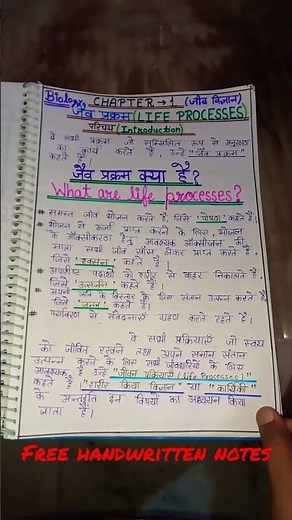 Biology, CHAPTER → 1 (जीव विज्ञान)
जैव प्रक्रम (LIFE PROCESSES)
परिचय (Introduction)
वे सभी प्रक्रम जो सम्मिलित रूप से अनुरक्षण
का कार्य करते हैं, उन्हें "जैव प्रक्रम"
कहते हैं।
जैव प्रक्रम क्या है?
What are life processes?
# समस्त जीव भोजन करते हैं, जिसे 'पोषण' कहते हैं।
# भोजन से ऊर्जा प्राप्त करने के लिए, भोजन
के ऑक्सीकरण हेतु आवश्यक ऑक्सीजन की
मात्रा सभी जीव साँस लेकर प्राप्त करते हैं,
जिसे 'श्वसन' कहते हैं।
# अपशिष्ट पदार्थों को शरीर से बाहर निकालते हैं,
जिसे 'उत्सर्जन' कहते हैं।
# अपने जाति के विस्तार के लिए संतान उत्पन्न करते हैं,
जिसे 'जनन' कहते हैं।
# पर्यावरण से संवेदनाएँ ग्रहण करते रहते हैं।
वे सभी प्रक्रियाएँ जो स्वयं
को जीवित रखने तथा अपने समान संतान
उत्पन्न करने के लिए सभी जीवधारियों के लिए
आवश्यक हैं उन्हें "जीवन प्रक्रियाएँ (Life Processes)"
कहते हैं। "शरीर क्रिया विज्ञान" या "कार्यिकी"
के अन्तर्गत इन विषयों का अध्ययन किया
जाता है।
FREE HANDWRITTEN NOTES